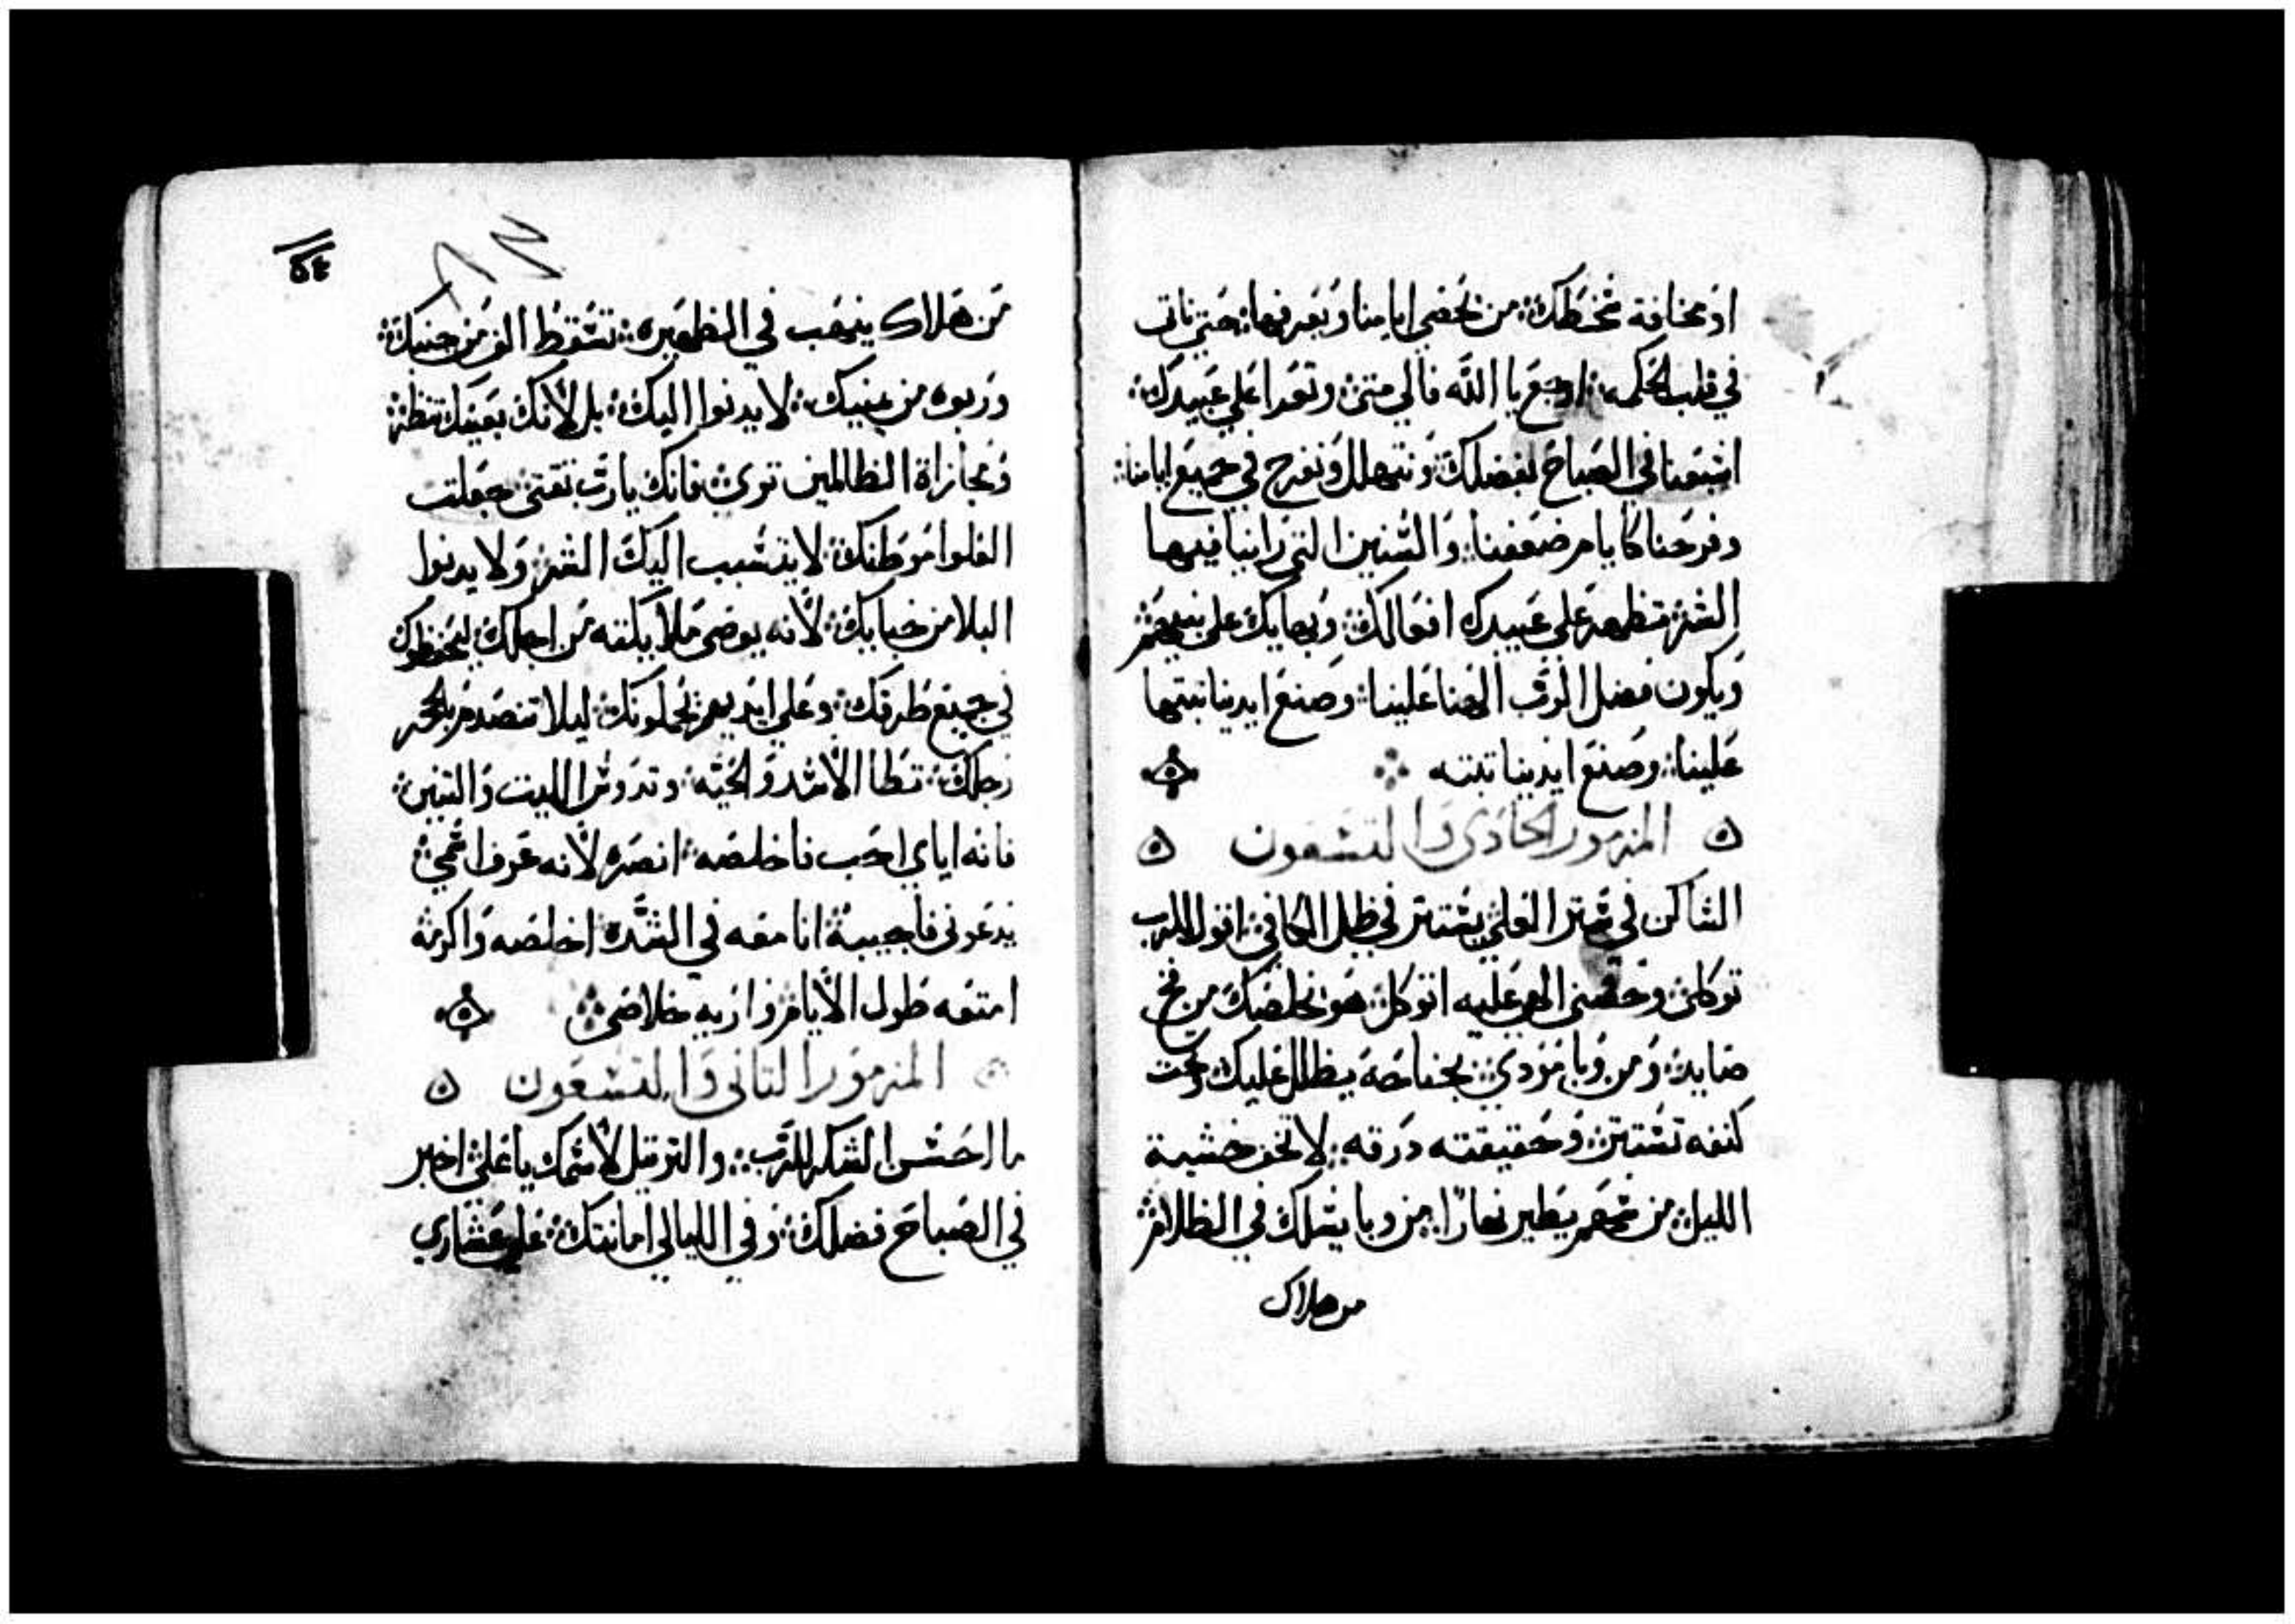 او مخافة سخطك: من تحصى ايامنا ويعرفها: حتى ناتى
في قلب الحكمه: ارجع يا الله فالي متى: وتعزا على عبيدك:
اشبعنا في الصباح بفضلك: ونتهلل ونفرح في جميع ايامنا:
وفرحنا كايام ضعفنا: والسنين التي راينا فيها
الشر: تظهر على عبيدك افعالك: وبهايك على بنيهم:
ويكون فضل الرب الهنا علينا: وصنع ايدينا تبتها
علينا: وصنع ايدينا تبته
المزمور الحادي والتسعون
الساكن في ستر العلي: يستتر في ظل الكافي: اقول للرب
توكلى: وحصنى الهى عليه اتوكل: هو يخلصك من فخ
صايد: ومن وبا موذي: بجناحه يظلل عليك وتحت
كنفه تستتر: وحقيقته درقه: لا تخف خشية
الليل: من سهم يطير نهارا: من وبا يسلك في الظلام:
من هلاك
٥٤
من هلاك ينهب في الظهيره: تسقط الف من جنبك:
وربوه من يمنيك: لا يدنوا اليك: بل لانك بعينك تنظر:
ومجازاة الظالمين ترى: فانك يارب ثقتى: جعلت
العلوا موطنك: لا يتسبب اليك الشر: ولا يدنوا
البلا من خبايك: لانه يوصى ملايكته من اجلك: ليحفظوك
في جميع طرقك: وعلى ايديهم يحملونك: ليلا تنصدم بالحجر
رجلك: تطا الاسد والحيه: وتدوس الليت والتنين:
فانه اياي احب فاخلصه: انصره لانه عرف اسمي:
يدعونى فاجيبه: انا معه في الشده: اخلصه واكرمه
امتعه طول الايام: واريه خلاصى:
المزمور التانى والتسعون
ما احسن الشكر للرب: والترتيل لاسمك يا علي: اخبر
في الصباح فضلك: وفي الليالي امانتك: على عشاري